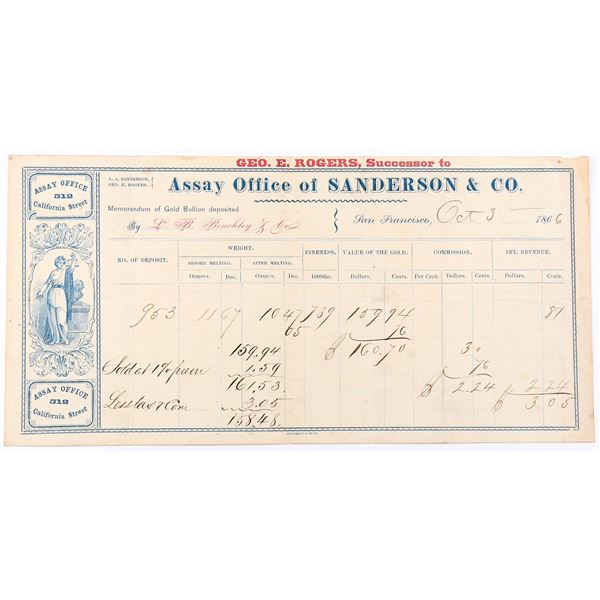 GEO. E. ROGERS, Successor to
L. A. SANDERSON,
GEO. E. ROGERS.
Assay Office of SANDERSON & CO.
ASSAY OFFICE
512
California Street
Memorandum of Gold Bullion deposited
San Francisco, Oct 3 1866
By L. B. Benchley & Co
NO. OF DEPOSIT. WEIGHT. FINENESS. VALUE OF THE GOLD. COMMISSION. INT. REVENUE.
BEFORE MELTING. AFTER MELTING.
Ounces. Dec. Ounces. Dec. 1000ths. Dollars. Cents. Per Cent. Dollars. Cents. Dollars. Cents.
953 11 67 10 47 739 159 94 81
65 76
159.94 $ 160.70 3
Sold at 1% prem 1.59 76
161.53. $ 2.24 2.24
Less tax & Com 3.05 $ 3.05
158.48.
ASSAY OFFICE
512
California Street